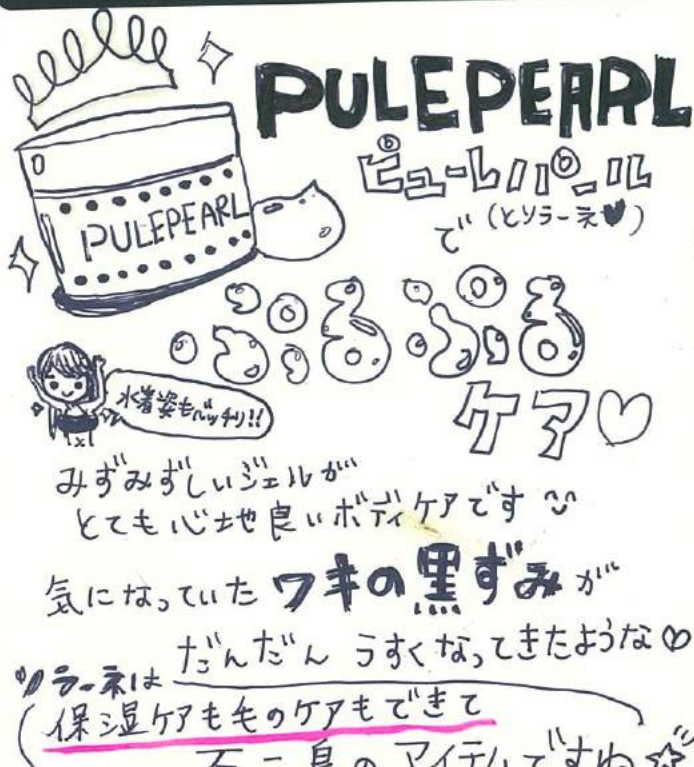 PULEPEARL
ピューレパール
で (とソラーネ♥)
PULEPEARL
ぷるぷる
ケア♡
水着姿もバッチリ!!
みずみずしいジェルが
とても心地良いボディケアです
気になっていたワキの黒ずみが
だんだんうすくなってきたような♡
ソラーネは
保湿ケアも毛のケアもできて
石二鳥のアイテムですね☆